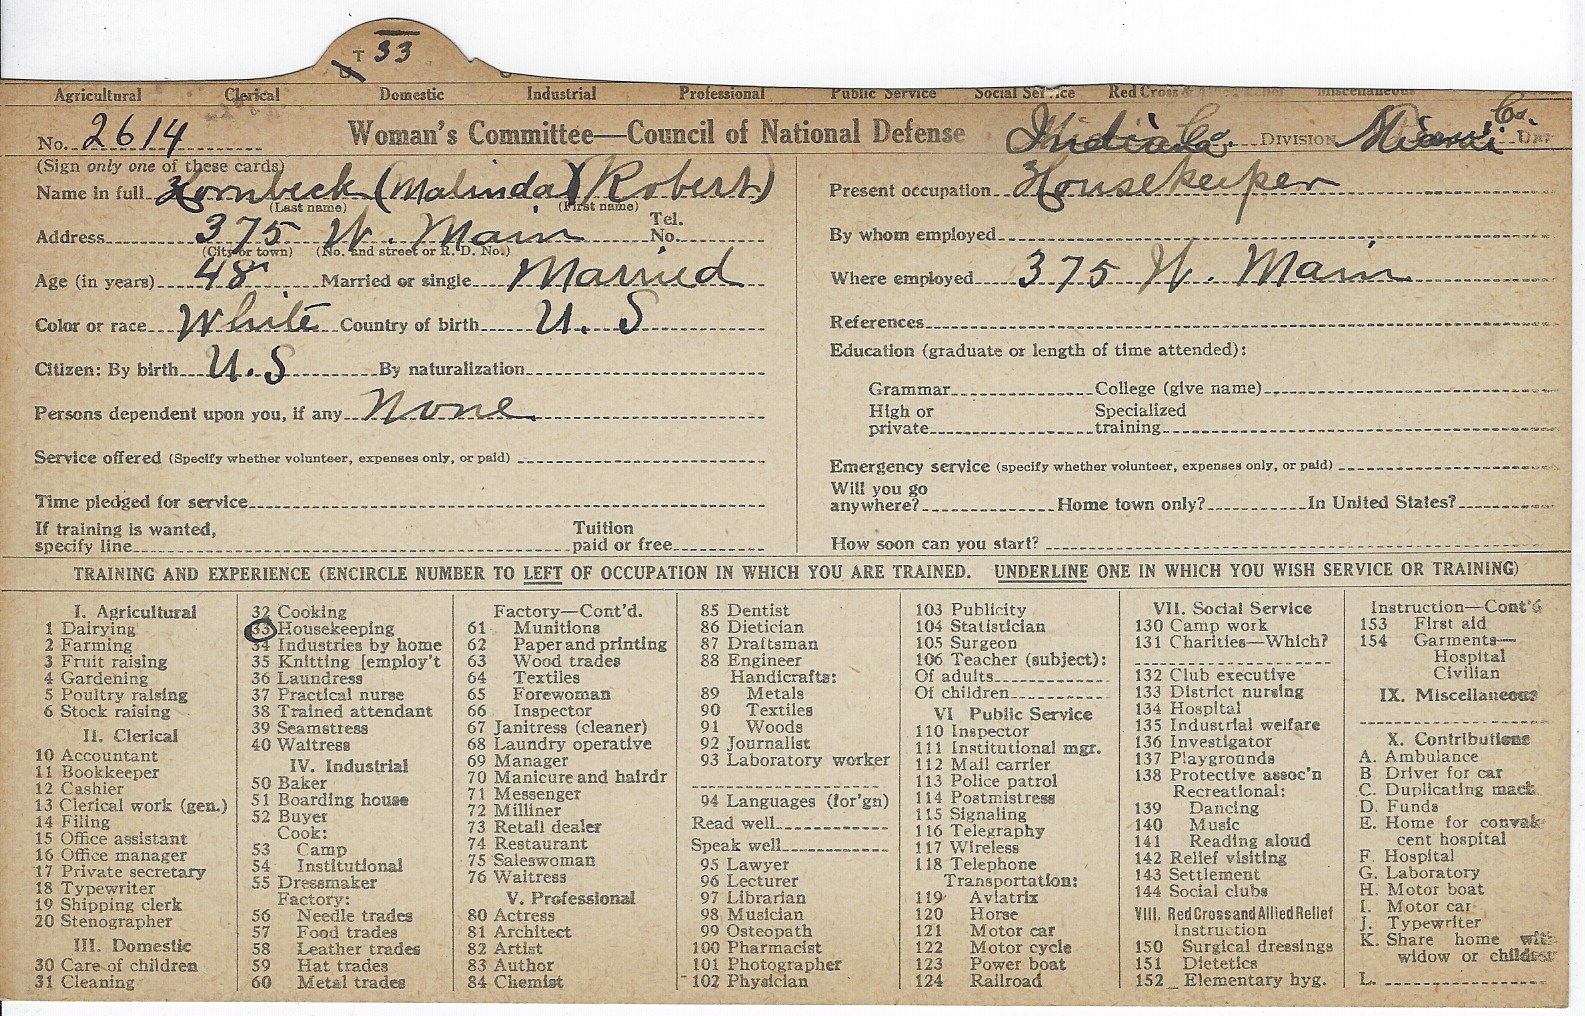 T 33
Agricultural Clerical Domestic Industrial Professional Public Service Social Service Red Cross & Miscellaneous
No. 2614 Woman's Committee—Council of National Defense DIVISION Miami Co.
(Sign only one of these cards)
Name in full Hornbeck (Malinda) (Robert)
(Last name) (First name)
Address 375 W. Main Tel. No.
(City or town) (No. and street or R. D. No.)
Age (in years) 48 Married or single Married
Color or race White Country of birth U. S
Citizen: By birth U. S By naturalization
Persons dependent upon you, if any None
Service offered (Specify whether volunteer, expenses only, or paid)
Time pledged for service
If training is wanted, specify line Tuition paid or free
Present occupation Housekeeper
By whom employed
Where employed 375 W. Main
References
Education (graduate or length of time attended):
Grammar College (give name)
High or private Specialized training
Emergency service (specify whether volunteer, expenses only, or paid)
Will you go anywhere? Home town only? In United States?
How soon can you start?
TRAINING AND EXPERIENCE (ENCIRCLE NUMBER TO LEFT OF OCCUPATION IN WHICH YOU ARE TRAINED. UNDERLINE ONE IN WHICH YOU WISH SERVICE OR TRAINING)
I. Agricultural
1 Dairying
2 Farming
3 Fruit raising
4 Gardening
5 Poultry raising
6 Stock raising
II. Clerical
10 Accountant
11 Bookkeeper
12 Cashier
13 Clerical work (gen.)
14 Filing
15 Office assistant
16 Office manager
17 Private secretary
18 Typewriter
19 Shipping clerk
20 Stenographer
III. Domestic
30 Care of children
31 Cleaning
32 Cooking
33 Housekeeping
34 Industries by home
35 Knitting [employ't
36 Laundress
37 Practical nurse
38 Trained attendant
39 Seamstress
40 Waitress
IV. Industrial
50 Baker
51 Boarding house
52 Buyer
Cook:
53 Camp
54 Institutional
55 Dressmaker
Factory:
56 Needle trades
57 Food trades
58 Leather trades
59 Hat trades
60 Metal trades
Factory—Cont'd.
61 Munitions
62 Paper and printing
63 Wood trades
64 Textiles
65 Forewoman
66 Inspector
67 Janitress (cleaner)
68 Laundry operative
69 Manager
70 Manicure and hairdr
71 Messenger
72 Milliner
73 Retail dealer
74 Restaurant
75 Saleswoman
76 Waitress
V. Professional
80 Actress
81 Architect
82 Artist
83 Author
84 Chemist
85 Dentist
86 Dietician
87 Draftsman
88 Engineer
Handicrafts:
89 Metals
90 Textiles
91 Woods
92 Journalist
93 Laboratory worker
94 Languages (for'gn)
Read well
Speak well
95 Lawyer
96 Lecturer
97 Librarian
98 Musician
99 Osteopath
100 Pharmacist
101 Photographer
102 Physician
103 Publicity
104 Statistician
105 Surgeon
106 Teacher (subject):
Of adults
Of children
VI Public Service
110 Inspector
111 Institutional mgr.
112 Mail carrier
113 Police patrol
114 Postmistress
115 Signaling
116 Telegraphy
117 Wireless
118 Telephone
Transportation:
119 Aviatrix
120 Horse
121 Motor car
122 Motor cycle
123 Power boat
124 Railroad
VII. Social Service
130 Camp work
131 Charities—Which?
132 Club executive
133 District nursing
134 Hospital
135 Industrial welfare
136 Investigator
137 Playgrounds
138 Protective assoc'n
Recreational:
139 Dancing
140 Music
141 Reading aloud
142 Relief visiting
143 Settlement
144 Social clubs
VIII. Red Cross and Allied Relief
Instruction
150 Surgical dressings
151 Dietetics
152 Elementary hyg.
Instruction—Cont'd
153 First aid
154 Garments—
Hospital
Civilian
IX. Miscellaneous
X. Contributions
A. Ambulance
B Driver for car
C. Duplicating mach.
D. Funds
E. Home for convales-
cent hospital
F. Hospital
G. Laboratory
H. Motor boat
I. Motor car
J. Typewriter
K. Share home with
widow or children
L.